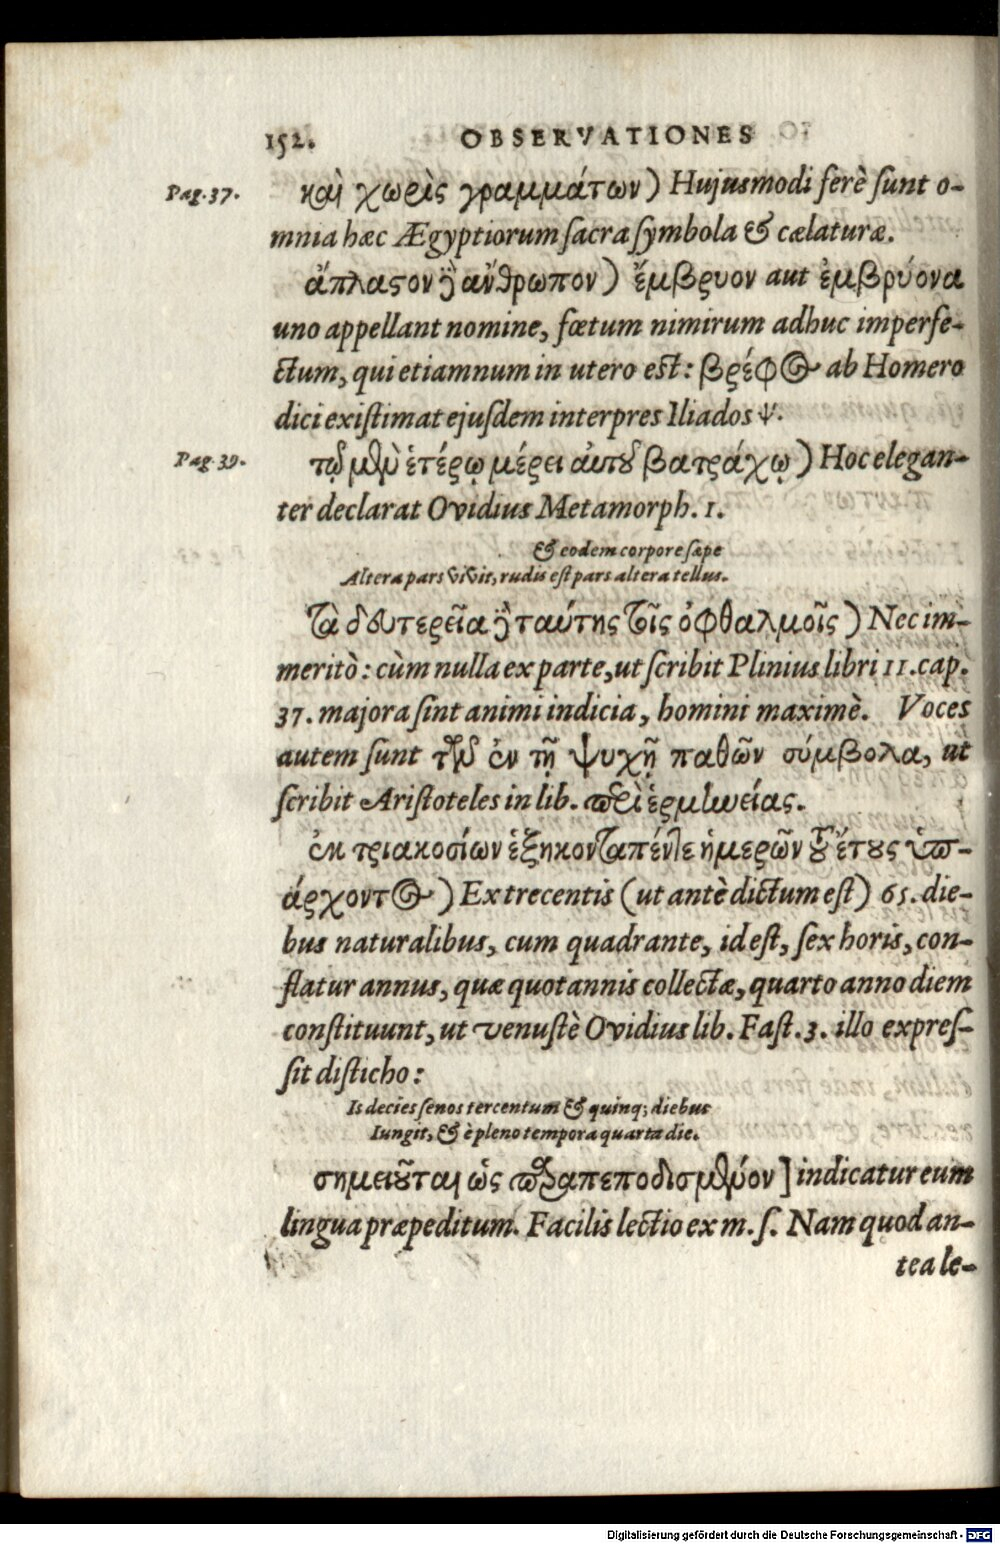 152. OBSERVATIONES
Pag. 37. καὶ χωρὶς γραμμάτων) Hujusmodi ferè sunt o-
mnia hæc Ægyptiorum sacra symbola & cælaturæ.
ἄπλαςον ἢ ἄνθρωπον) ἔμβρυον aut ἐμβρύονα
uno appellant nomine, fœtum nimirum adhuc imperfe-
ctum, qui etiamnum in utero est: βρέφος ab Homero
dici existimat ejusdem interpres Iliados ψ.
Pag. 39. τῷ μὲν ἑτέρῳ μέρει αὐτοῦ βατράχῳ) Hoc elegan-
ter declarat Ovidius Metamorph. 1.
& eodem corpore sæpe
Altera pars vivit, rudis est pars altera tellus.
τὰ δευτερεῖα ταύτης τοῖς ὀφθαλμοῖς) Nec im-
meritò: cùm nulla ex parte, ut scribit Plinius libri 11. cap.
37. majora sint animi indicia, homini maximè. Voces
autem sunt τῶν ἐν τῇ ψυχῇ παθῶν σύμβολα, ut
scribit Aristoteles in lib. περὶ ἑρμηνείας.
ἐκ τριακοσίων ἑξηκονταπέντε ἡμερῶν τοῦ ἔτους ὑπ-
άρχοντος) Ex trecentis (ut antè dictum est) 65. die-
bus naturalibus, cum quadrante, id est, sex horis, con-
flatur annus, quæ quotannis collectæ, quarto anno diem
constituunt, ut venustè Ovidius lib. Fast. 3. illo expres-
sit disticho:
Is decies senos tercentum & quinq; diebus
Iungit, & è pleno tempora quarta die.
σημειοῦται ὡς παραπεποδισμένον] indicatur eum
lingua præpeditum. Facilis lectio ex m. s. Nam quod an-
tea le-
Digitalisierung gefördert durch die Deutsche Forschungsgemeinschaft - DFG